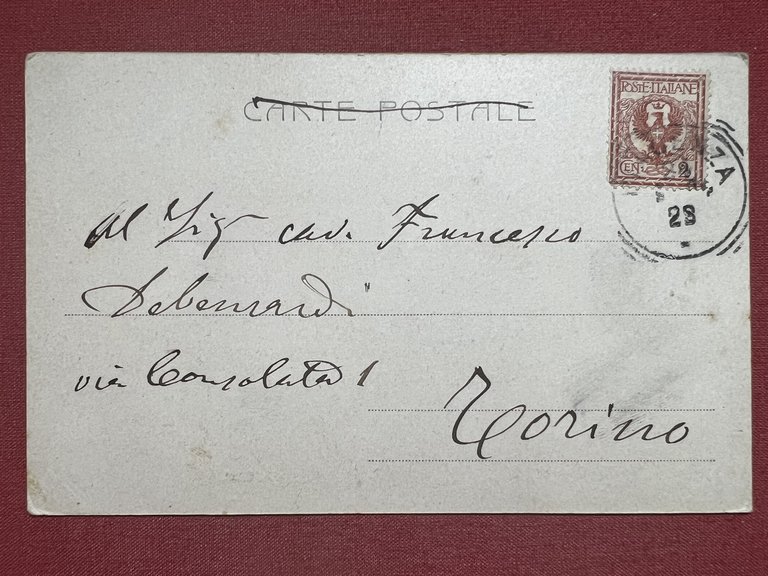 CARTE POSTALE
POSTE ITALIANE
CEN. 2
ZA
23
al Sigr cav. Francesco
Debernardi
via Consolata 1
Torino